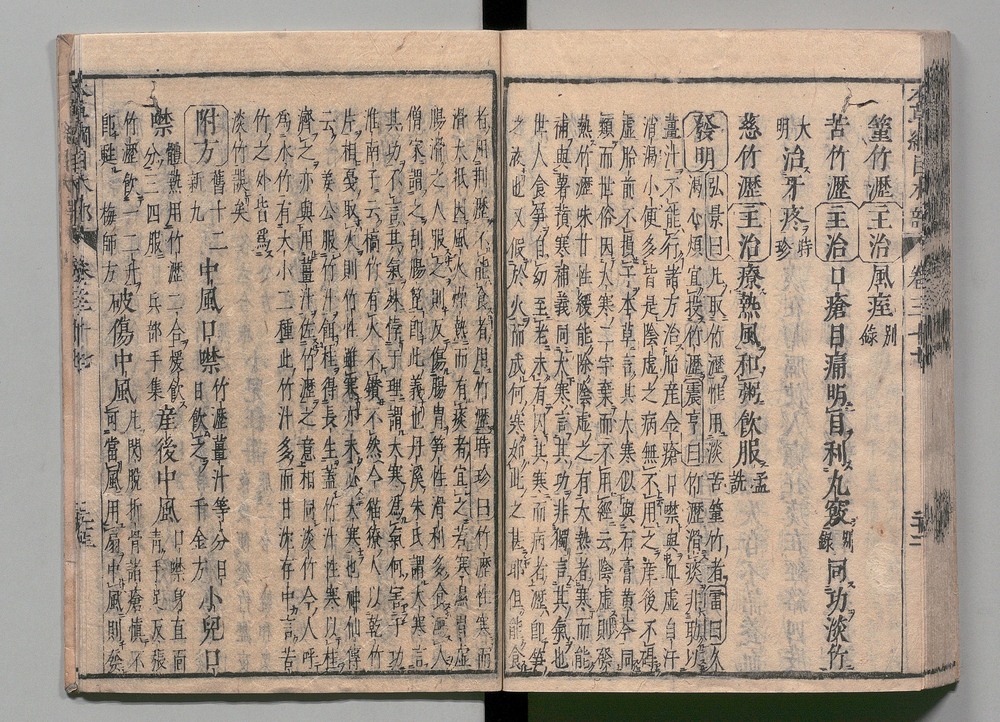 本草綱目木部 卷三十七
篁竹瀝 主治 風痓 別錄
苦竹瀝 主治 口瘡目痛明目利九竅 別錄 同功淡竹
大明 治牙疼 時珍
慈竹瀝 主治 療熱風和粥飲服 孟詵
發明 弘景曰凡取竹瀝惟用淡苦篁竹者雷曰久
渴心煩宜投竹瀝震亨曰竹瀝滑痰非助以
薑汁不能行諸方治胎産金瘡口噤與血虛自汗
消渴小便多皆是陰虛之病無不用之産後不碍
虛胎前不損子本草言其大寒似與石膏黃芩同
類而世俗因大寒二字棄而不用經云陰虛則發
熱竹瀝味甘性緩能除陰虛之有大熱者寒而能
補與薯蕷寒補義同大寒言其功非獨言其氣也
世人食笋自幼至老未有因其寒而病者瀝即笋
之液也又假於火而成何寒如此之甚耶但能食
者用荆瀝不能食者用竹瀝時珍曰竹瀝性寒而
滑大抵因風火燥熱而有痰者宜之若寒濕胃虛
腸滑之人服之則反傷腸胃笋性滑利多食瀉人
僧家謂之刮腸篦即此義也丹溪朱氏謂大寒言
其功不言其氣殊悖于理謂大寒爲氣何害于功
淮南子云槁竹有火不鑽不然今獠人以乾竹
片相戛取火則竹性雖寒亦未必大寒也神仙傳
云離婁公服竹汁餌桂得長生蓋竹汁性寒以桂
濟之亦與用薑汁佐竹瀝之意相同淡竹今人呼
爲水竹有大小二種此竹汁多而甘沈存中言苦
竹之外皆爲
淡竹誤矣
附方 舊十二 新九 中風口噤 竹瀝薑汁等分日日飲之千金方 小兒口
噤 體熱用竹瀝二合煖飲分三四服 兵部手集 産後中風 口噤身直面青手足反張
竹瀝飲一二升即甦 梅師方 破傷中風 凡閃脫折骨諸瘡愼不可當風用扇中風則發